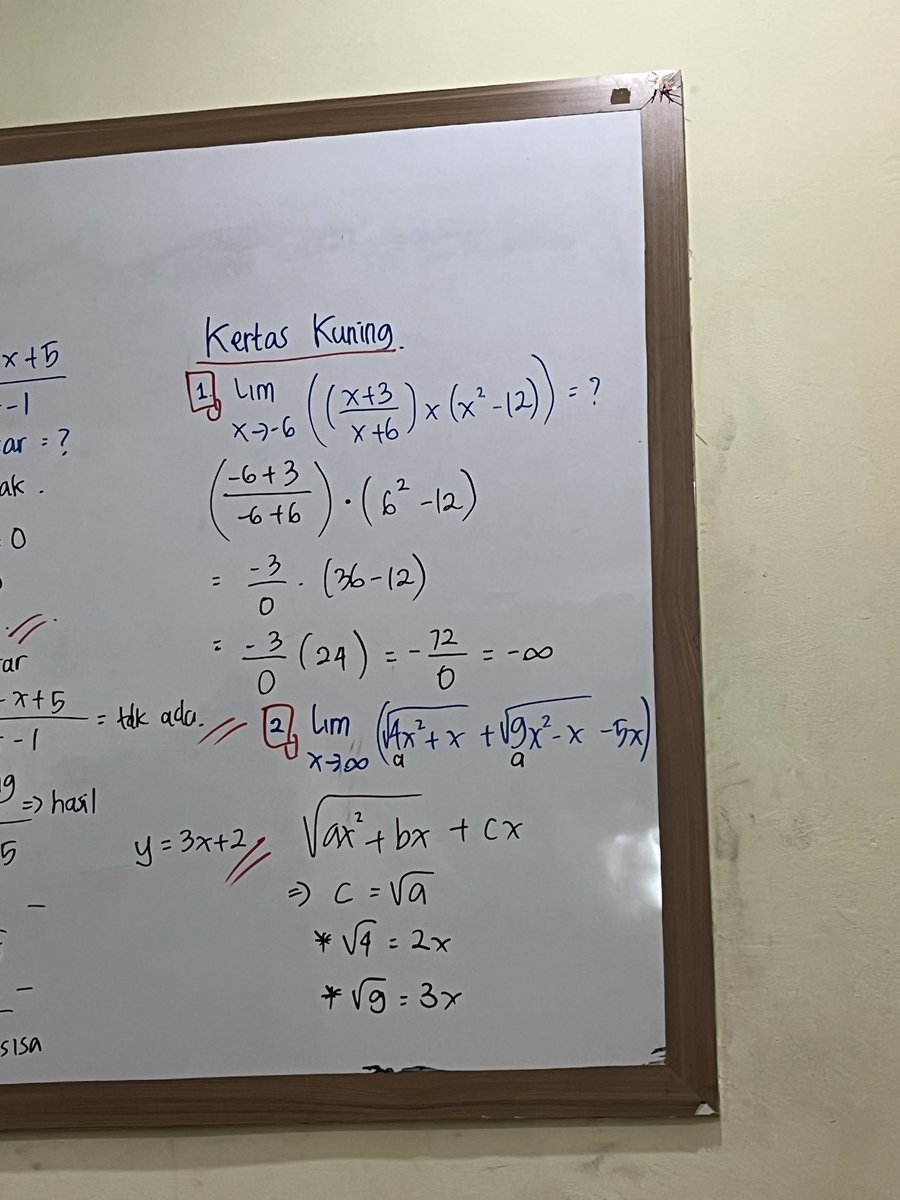 x+5
-1
ar = ?
ak.
= 0
ar
-x+5
-1
= tdk ada.
g => hasil
5
y = 3x+2
sisa
Kertas Kuning.
1. Lim x→-6 ((x+3/x+6) x (x² -12)) = ?
(-6+3/-6+6) · (6² -12)
= -3/0 · (36-12)
= -3/0 (24) = -72/0 = -∞
2 Lim x→∞ (√4x²+x + √9x²-x -5x)
a a
√ax²+bx + cx
=> c = √a
* √4 = 2x
* √9 = 3x